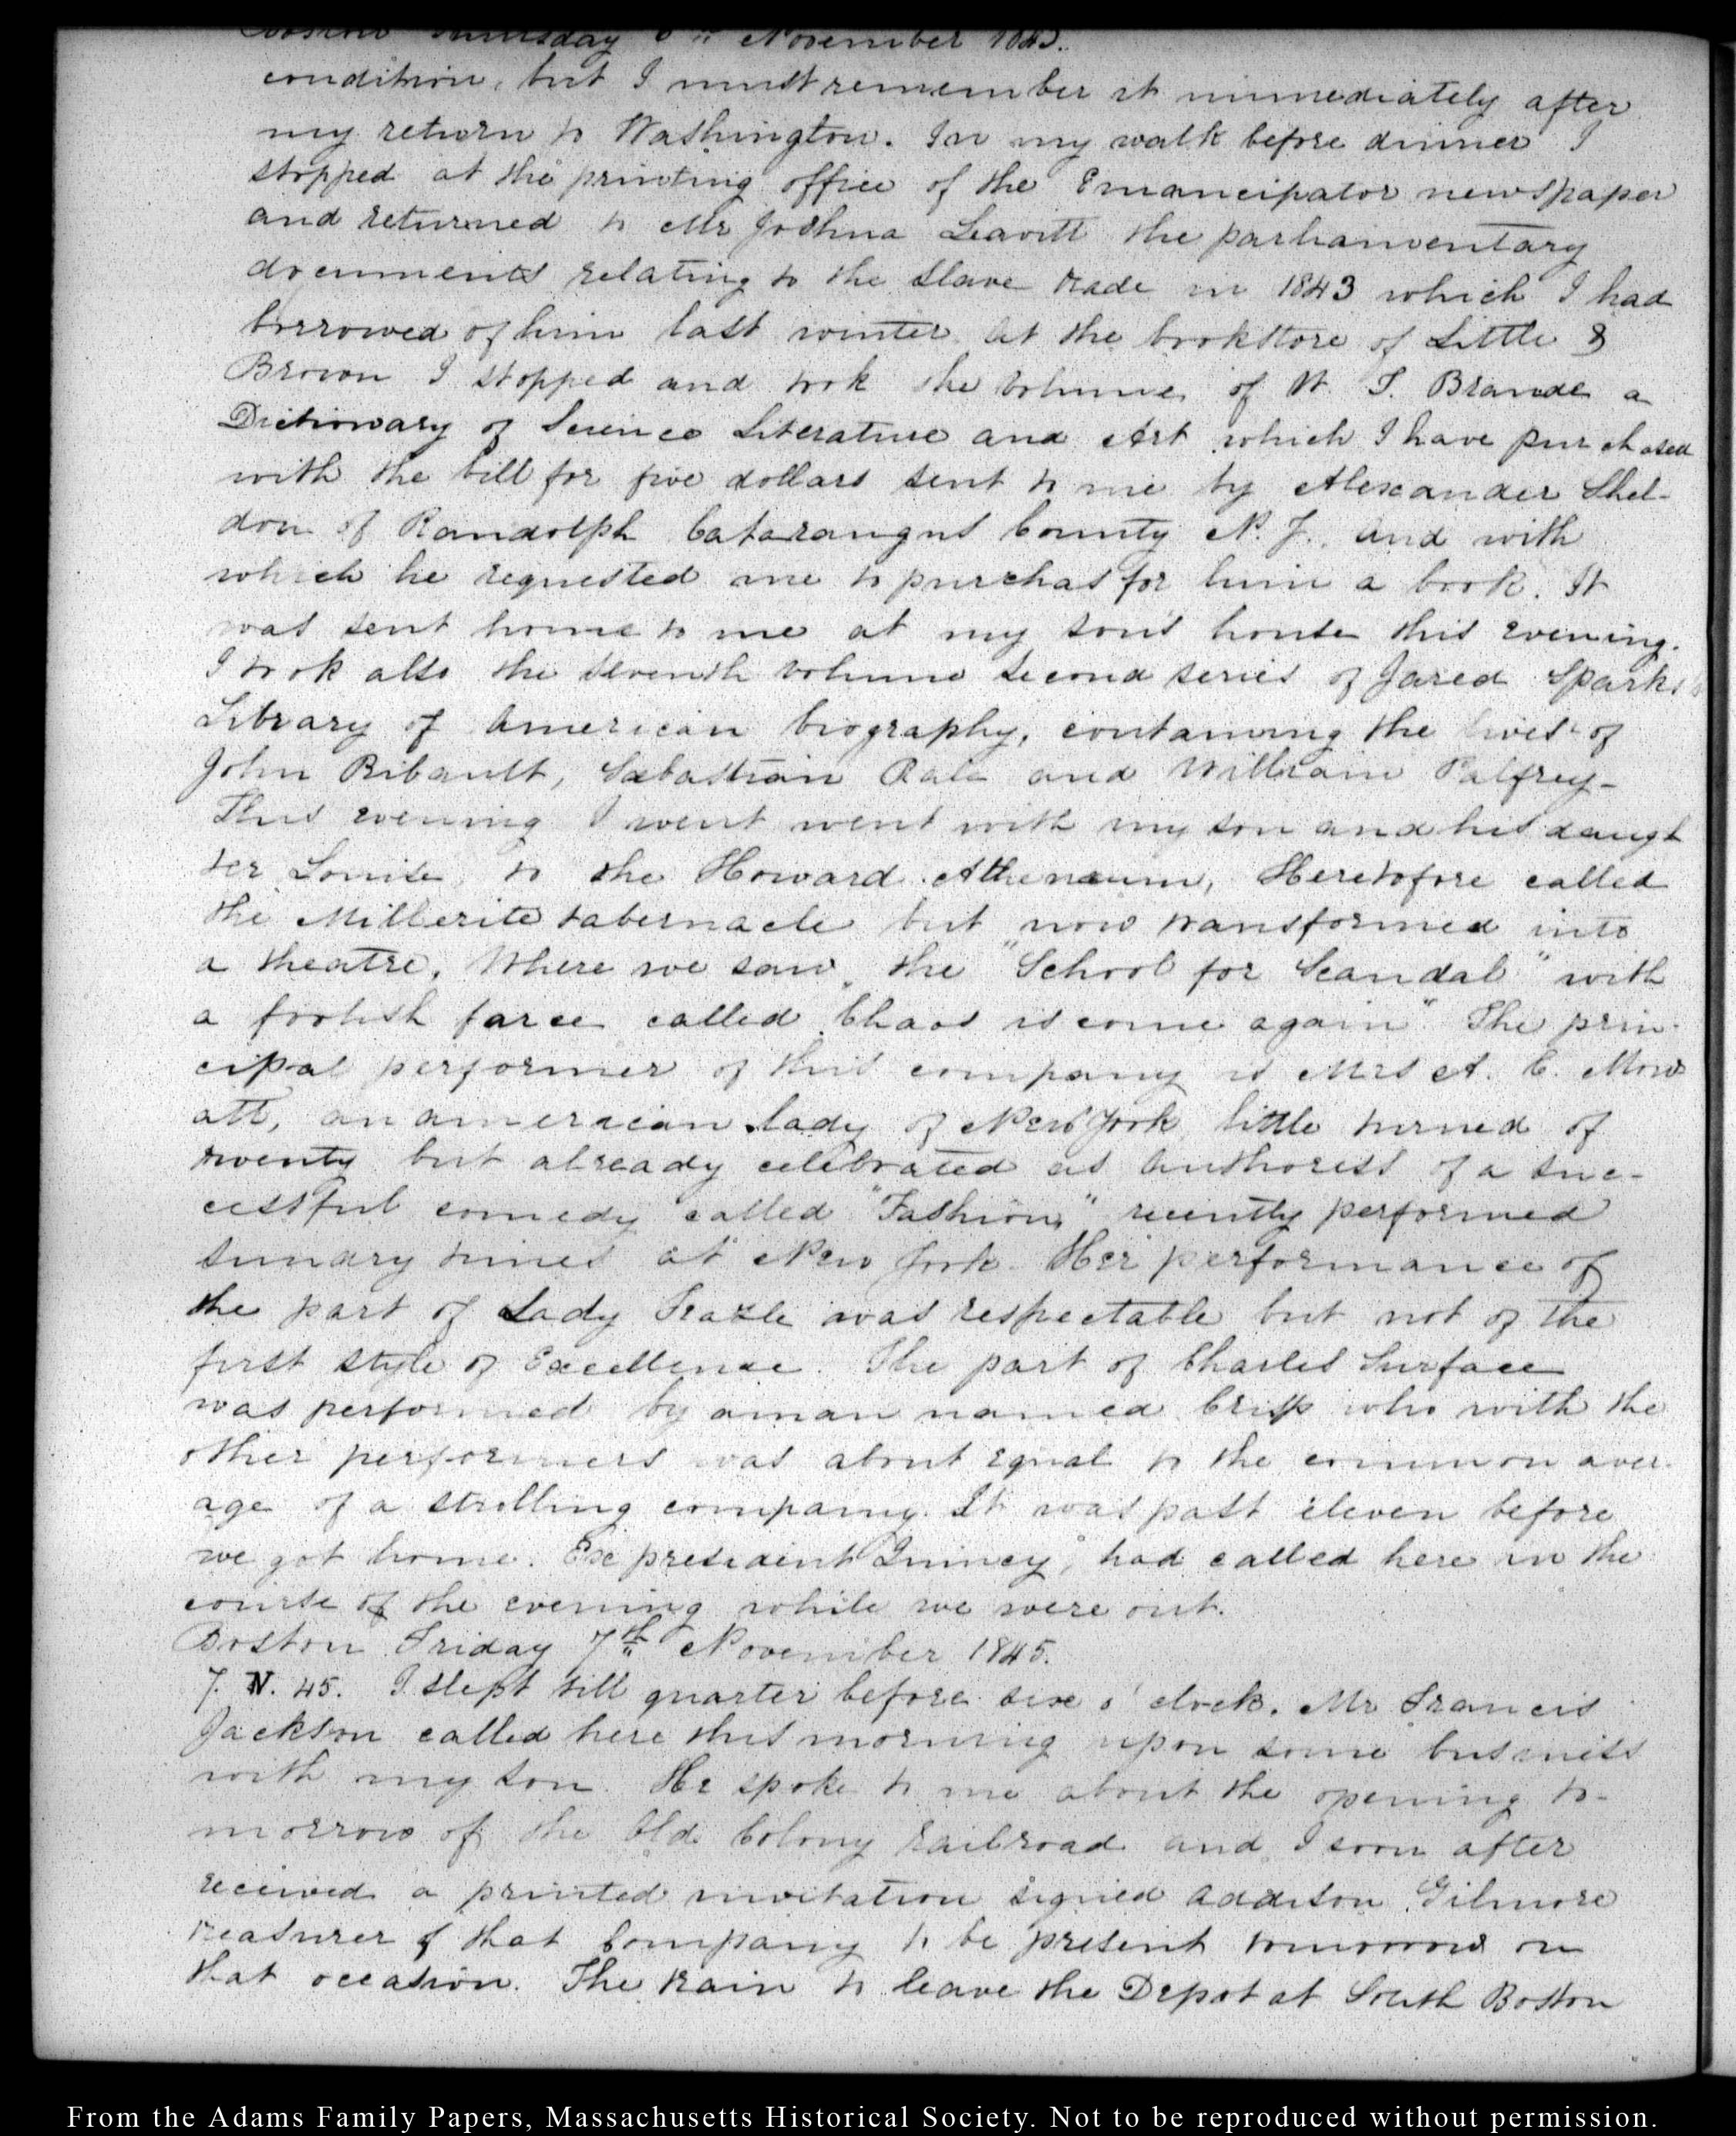 Boston Thursday 6th November 1845.
condition, but I must remember it immediately after
my return to Washington. In my walk before dinner I
stopped at the printing office of the Emancipator newspaper
and returned to Mr Joshua Leavitt the parliamentary
documents relating to the Slave trade in 1843 which I had
borrowed of him last winter. At the bookstore of Little &
Brown I stopped and took the volume of W. T. Brande a
Dictionary of Science Literature and Art which I have purchased
with the bill for five dollars sent to me by Alexander Shel-
don of Randolph Cataraugus County N. J. and with
which he requested me to purchas for him a book. It
was sent home to me at my sons house this evening.
I took also the seventh volume second series of Jared Sparks's
Library of American biography, containing the lives of
John Ribault, Sebastian Rale and William Palfrey-
This evening I went went with my son and his daugh
ter Louisa, to the Howard Athenaeum, Heretofore called
the Millerite tabernacle but now transformed into
a theatre. Where we saw the "School for Scandal" with
a foolish farce called "Chaos is come again" The prin-
cipal performer of this company is Mrs A. C. Mow
att, an american lady of New York little turned of
twenty but already celebrated as authoress of a suc-
cessful comedy called "Fashion," recently performed
sundry times at New York. Her performance of
the part of Lady Teazle was respectable but not of the
first style of Excellence. The part of Charles Surface
was performed by a man named Crisp who with the
other performers was about equal to the common aver-
age of a strolling company. It was past eleven before
we got home. Ex president Quincy, had called here in the
course of the evening while we were out.
Boston Friday 7th November 1845.
7. N. 45. I slept till quarter before six o'clock. Mr Francis
Jackson called here this morning upon some business
with my son. He spoke to me about the opening to-
morrow of the Old Colony railroad and I soon after
received a printed invitation signed Addison Gilmore
treasurer of that Company to be present tomorrow on
that occasion. The train to leave the Depot at South Boston
From the Adams Family Papers, Massachusetts Historical Society. Not to be reproduced without permission.